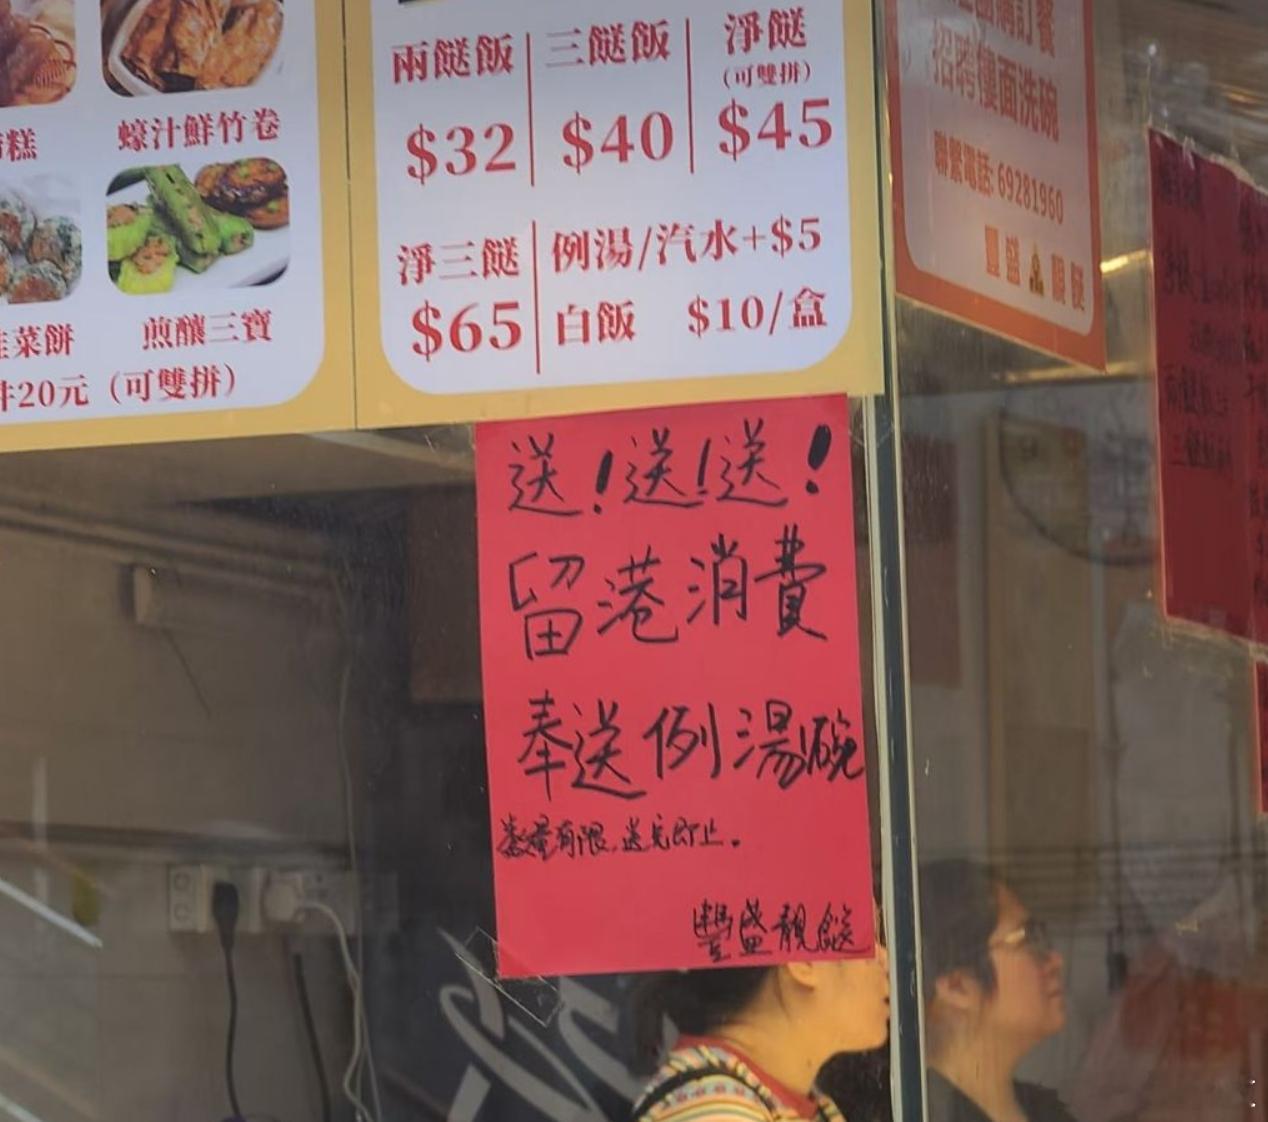 糕
蠔汁鮮竹卷
菜餅
煎釀三寶
20元（可雙拼）
兩餸飯
$32
三餸飯
$40
淨餸
(可雙拼)
$45
淨三餸
$65
例湯/汽水+$5
白飯 $10/盒
訂餐
招聘樓面洗碗
聯繫電話: 69281960
豐盛靚餸
送！送！送！
留港消費
奉送例湯碗
數量有限，送完即止。
豐盛靚餸